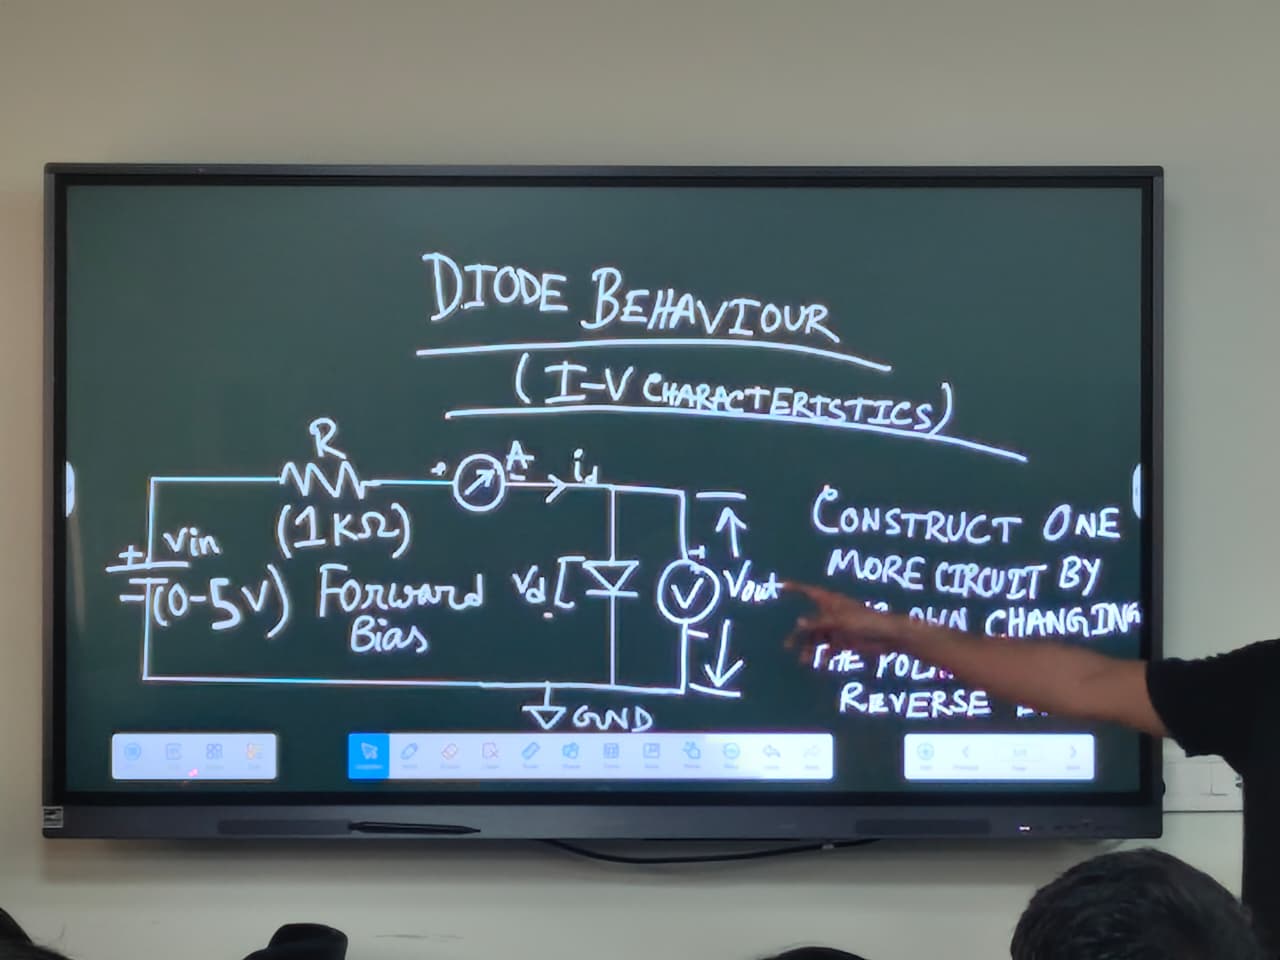 DIODE BEHAVIOUR
(I-V CHARACTERISTICS)
R
(1KΩ)
+
A
id
+
Vin
-
(0-5V)
Forward
Bias
Vd
+
V
-
Vout
GND
CONSTRUCT ONE
MORE CIRCUIT BY
OWN CHANGING
THE
REVERSE